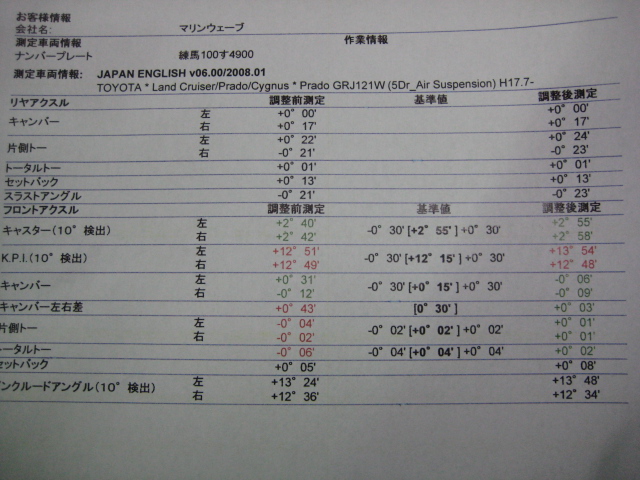 お客様情報
会社名: マリンウェーブ
測定車両情報 作業情報
ナンバープレート 練馬100す4900
測定車両情報: JAPAN ENGLISH v06.00/2008.01
TOYOTA * Land Cruiser/Prado/Cygnus * Prado GRJ121W (5Dr_Air Suspension) H17.7-
リヤアクスル 調整前測定 基準値 調整後測定
キャンバー 左 +0° 00' +0° 00'
右 +0° 17' +0° 17'
片側トー 左 +0° 22' +0° 24'
右 -0° 21' -0° 23'
トータルトー +0° 01' +0° 01'
セットバック +0° 13' +0° 13'
スラストアングル -0° 21' -0° 23'
フロントアクスル 調整前測定 基準値 調整後測定
キャスター(10° 検出) 左 +2° 40' -0° 30' [+2° 55'] +0° 30' +2° 55'
右 +2° 42' +2° 58'
K.P.I.(10° 検出) 左 +12° 51' -0° 30' [+12° 15'] +0° 30' +13° 54'
右 +12° 49' +12° 48'
キャンバー 左 +0° 31' -0° 30' [+0° 15'] +0° 30' -0° 06'
右 -0° 12' -0° 09'
キャンバー左右差 +0° 43' [0° 30'] +0° 03'
片側トー 左 -0° 04' -0° 02' [+0° 02'] +0° 02' +0° 01'
右 -0° 02' +0° 01'
ータルトー -0° 06' -0° 04' [+0° 04'] +0° 04' +0° 02'
セットバック +0° 05' +0° 08'
ンクルードアングル(10° 検出) 左 +13° 24' +13° 48'
右 +12° 36' +12° 34'